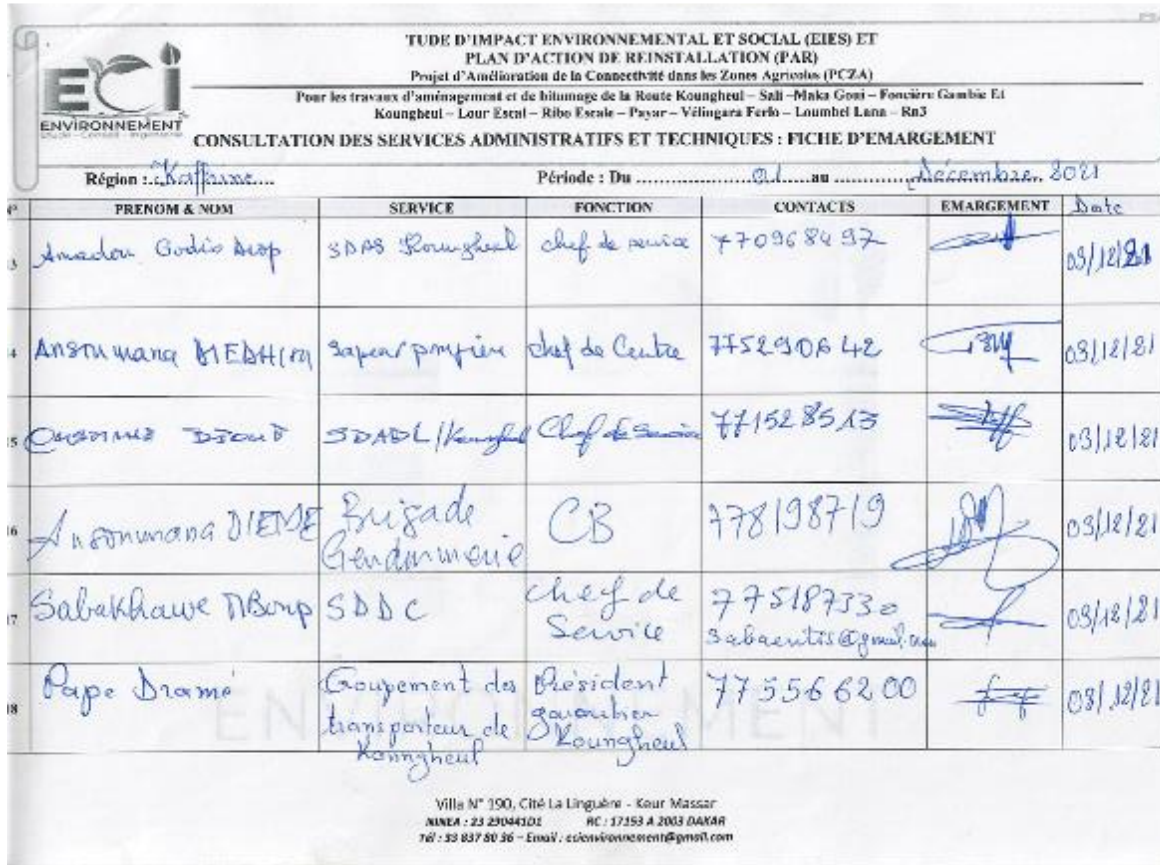 ECI
ENVIRONNEMENT
Etude - Conseil - Ingénierie
TUDE D'IMPACT ENVIRONNEMENTAL ET SOCIAL (EIES) ET
PLAN D'ACTION DE REINSTALLATION (PAR)
Projet d'Amélioration de la Connectivité dans les Zones Agricoles (PCZA)
Pour les travaux d'aménagement et de bitumage de la Route Koungheul – Sali –Maka Goui – Foncière Gambie Et
Koungheul – Lour Escal – Ribo Escale – Payar – Vélingara Ferlo – Loumbel Lana – Rn3
CONSULTATION DES SERVICES ADMINISTRATIFS ET TECHNIQUES : FICHE D'EMARGEMENT
Région : Kaffrine Période : Du 01 au Décembre 2021
N° PRENOM & NOM SERVICE FONCTION CONTACTS EMARGEMENT Date
3 Amadou Diop SDAS Koungheul chef de service 770968497 03/12/21
4 Ansoumana DIEDHIOU Sapeur pompier chef de Centre 775290642 03/12/21
5 Ousmane SDADL/Koungheul Chef de Service 771528513 03/12/21
16 Ansoumana Brigade Gendarmerie CB 778198719 03/12/21
17 Sabakhawe MBoup SDDC chef de Service 775187330 03/12/21
18 Pape Dramé Goupement des transporteur de Koungheul Président Koungheul 775566200 03/12/21
ENVIRONNEMENT
Villa N° 190, Cité La Linguère - Keur Massar
NINEA : 23 290441D1 RC : 17153 A 2003 DAKAR
Tél : 33 837 80 36 – Email : ecienvironnement@gmail.com